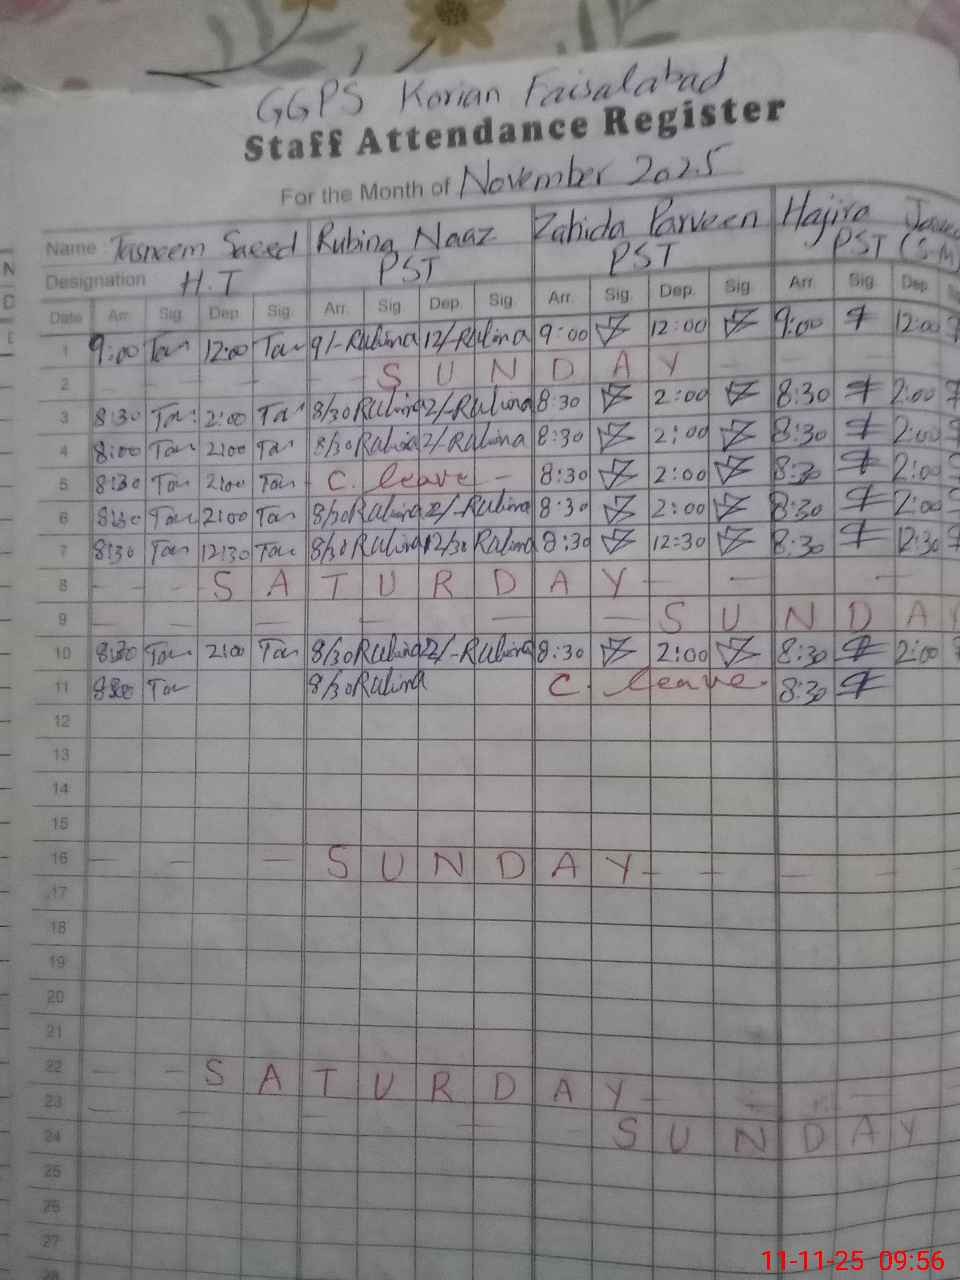 GGPS Korian Faisalabad
Staff Attendance Register
For the Month of November 2025
Name Tasneem Saeed Rubina Naaz Zahida Parveen Hajira
Designation H.T PST PST PST (S.M)
Date Arr. Sig. Dep. Sig. Arr. Sig. Dep. Sig. Arr. Sig. Dep. Sig. Arr. Sig. Dep.
1 9:00 Tas 12:00 Tas 9/- Rubina 12/- Rubina 9:00 12:00 9:00 12:00
2 S U N D A Y
3 8:30 Tas 2:00 Tas 8/30 Rubina 2/- Rubina 8:30 2:00 8:30 2:00
4 8:00 Tas 2:00 Tas 8/30 Rubina 2/- Rubina 8:30 2:00 8:30 2:00
5 8:30 Tas 2:00 Tas - C. leave - 8:30 2:00 8:30 2:00
6 8:30 Tas 2:00 Tas 8/30 Rubina 2/- Rubina 8:30 2:00 8:30 2:00
7 8:30 Tas 12:30 Tas 8/30 Rubina 12/30 Rubina 8:30 12:30 8:30 12:30
8 - - S A T U R D A Y - - -
9 - - - - - - - S U N D A
10 8:30 Tas 2:00 Tas 8/30 Rubina 2/- Rubina 8:30 2:00 8:30 2:00
11 Tas 8/30 Rubina C. leave. 8:30
12
13
14
15
16 - - - S U N D A Y - - - -
17
18
19
20
21
22 - - S A T U R D A Y - - -
23
24 S U N D A Y
25
26
27
28
11-11-25 09:56